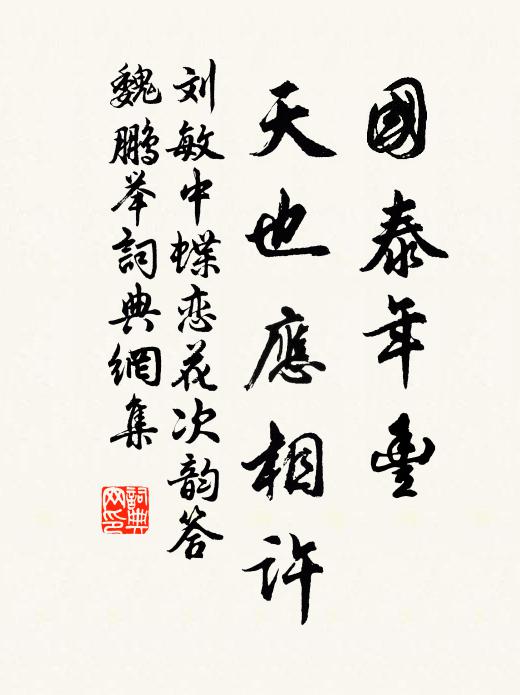 國泰年豐
天也應相許
刘敏中蝶恋花次韵答
魏鹏举詞典網集
詞典网印